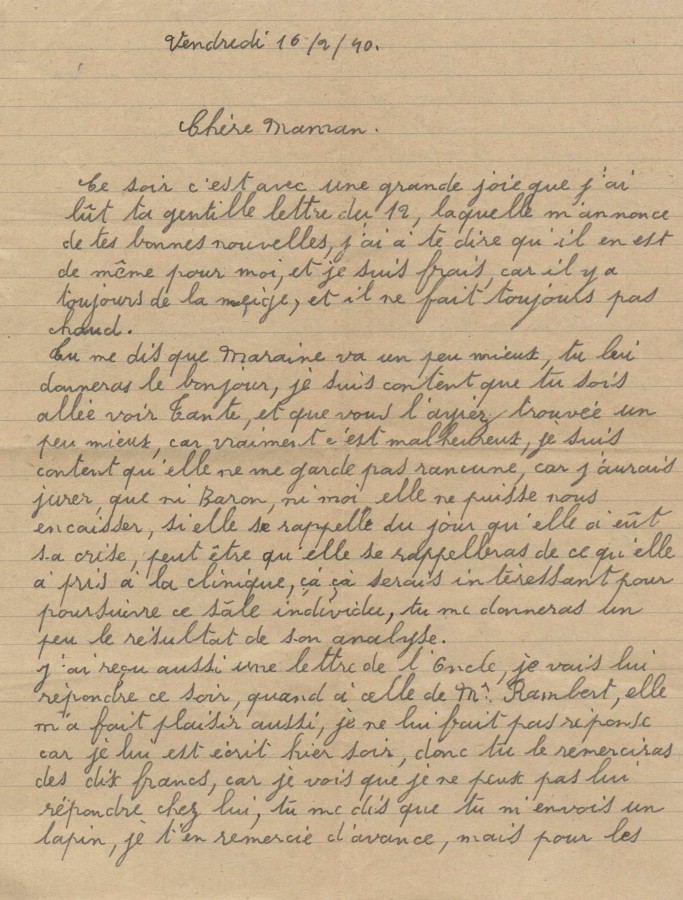 Vendredi 16/2/40.
Chère Maman.
Ce soir c'est avec une grande joie que j'ai
lût ta gentille lettre du 12, laquelle m'annonce
de tes bonnes nouvelles, j'ai à te dire qu'il en est
de même pour moi, et je suis frais, car il y a
toujours de la neige, et il ne fait toujours pas
chaud.
Tu me dis que Maraine va un peu mieux, tu lui
donneras le bonjour, je suis content que tu sois
allée voir Tante, et que vous l'ayiez trouvée un
peu mieux, car vraiment c'est malheureux, je suis
content qu'elle ne me garde pas rancune, car j'aurais
jurer que ni Baron, ni moi elle ne puisse nous
encaisser, si elle se rappelle du jour qu'elle a eût
sa crise, peut être qu'elle se rappelleras de ce qu'elle
a pris à la clinique, çà çà serais intèressant pour
poursuivre ce sâle individu, tu me donneras un
peu le résultat de son analyse.
j'ai reçu aussi une lettre de l'Oncle, je vais lui
répondre ce soir, quand à celle de Mr. Rambert, elle
m'a fait plaisir aussi, je ne lui fait pas réponse
car je lui est écrit hier soir, donc tu le remerciras
des dix francs, car je vois que je ne peux pas lui
répondre chez lui, tu me dis que tu m'envois un
lapin, je t'en remercie d'avance, mais pour les